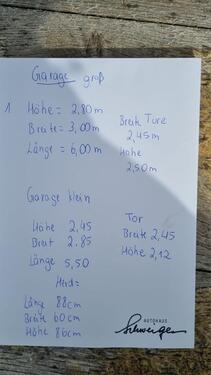 Garage groß
1 Höhe = 2,80m
Breite = 3,00m
Länge = 6,00m
Breite Türe
2,45m
Höhe
2,50m
Garage klein
Höhe 2,45
Breit 2.85
Länge 5,50
Tor
Breite 2,45
Höhe 2,12
Herd =
Länge 88cm
Breite 60cm
Höhe 86cm
AUTOHAUS